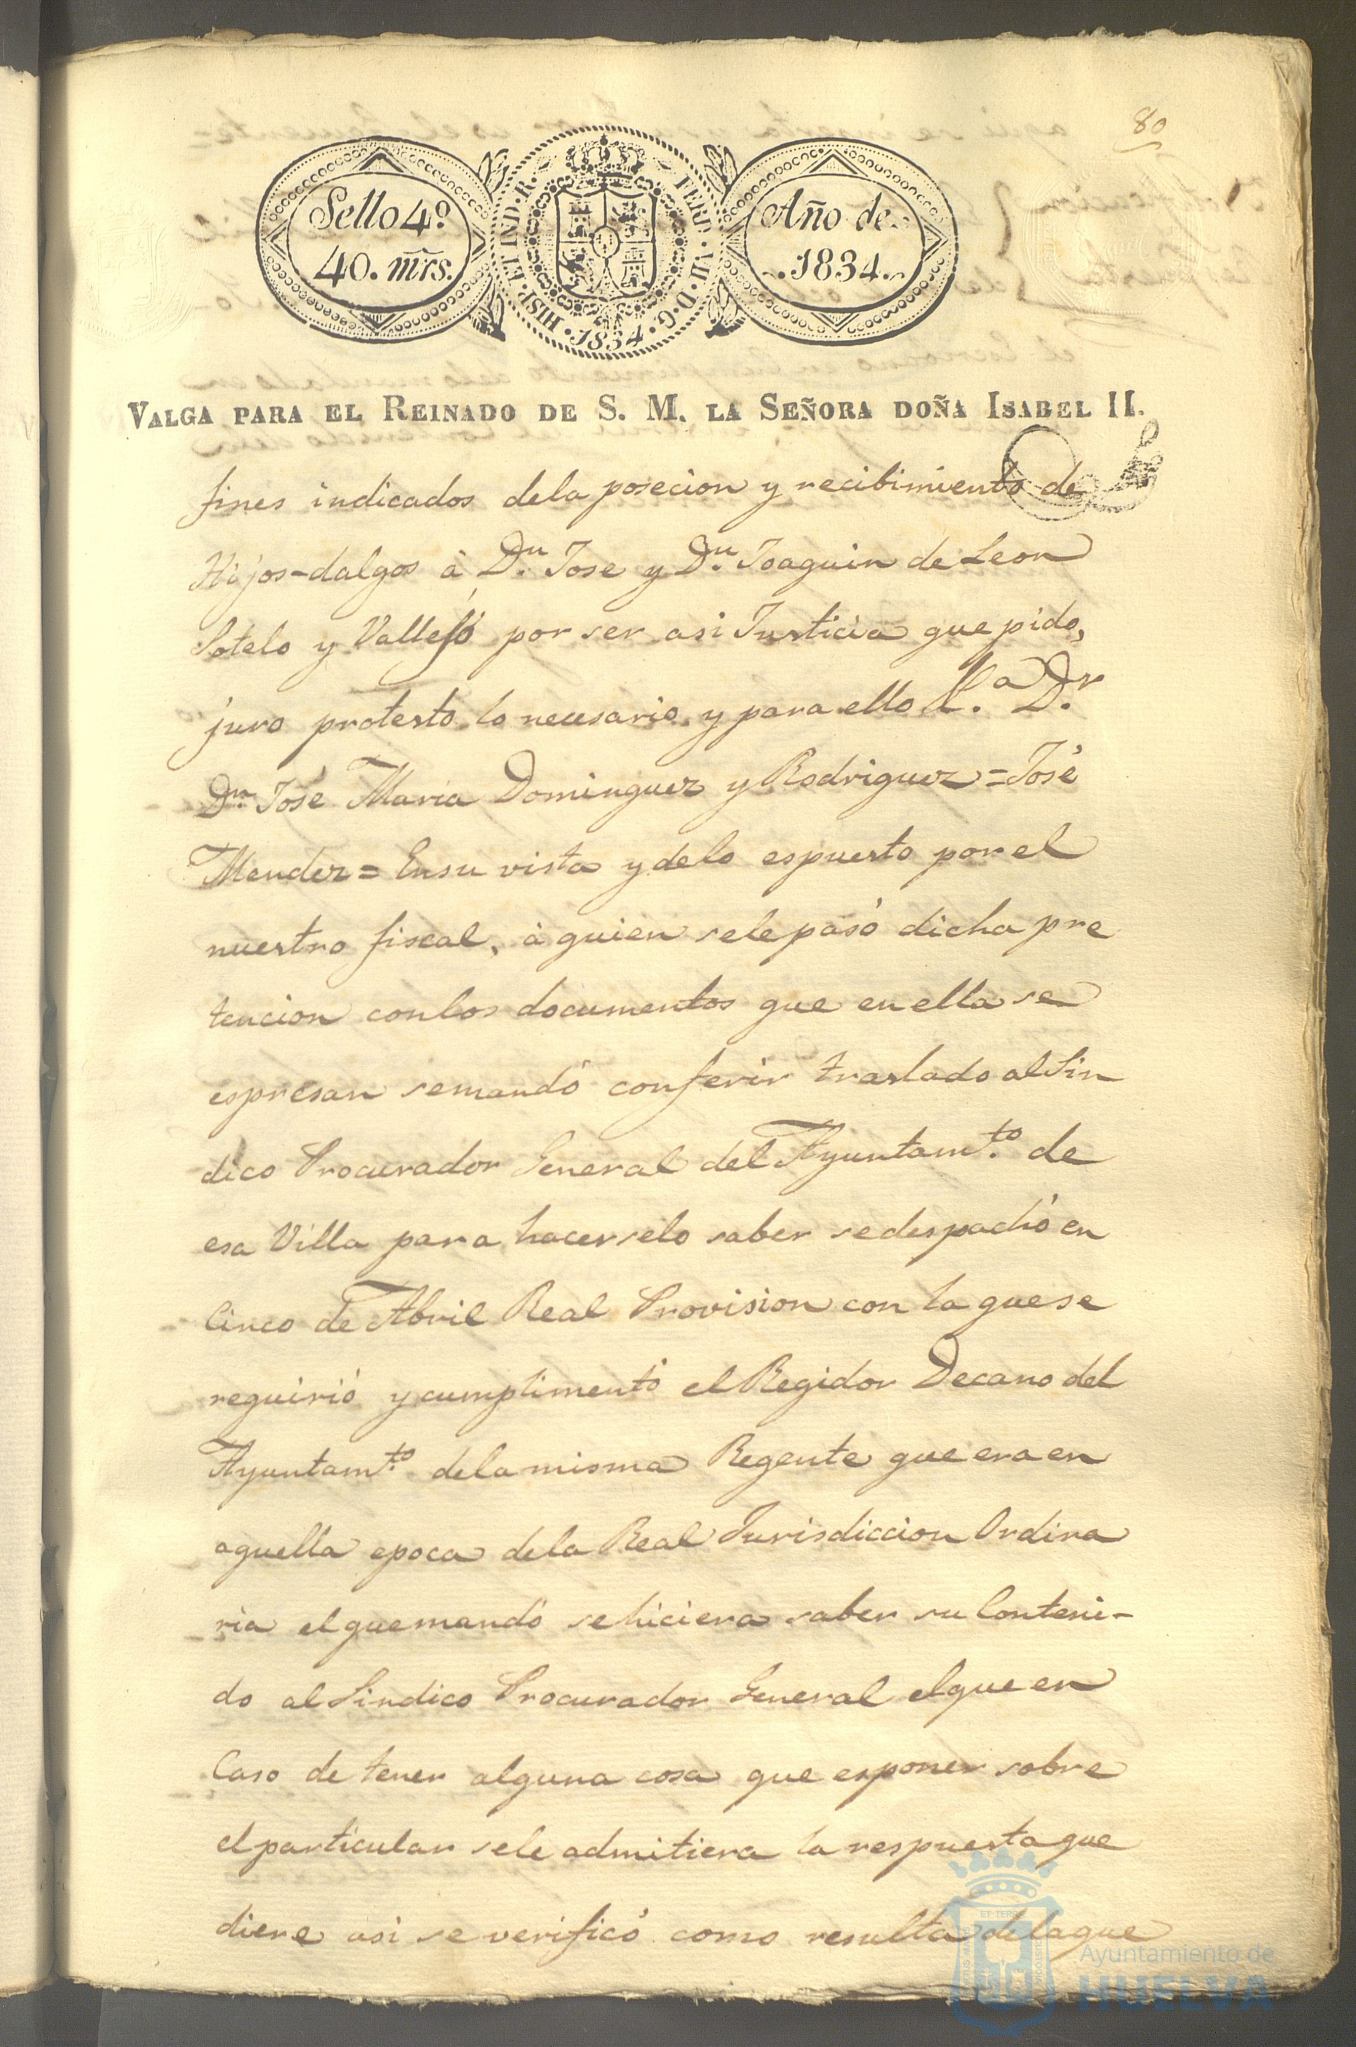 80
Sello 4º.
40. mrs.
HISP. ET IND. R. FERD. VII. D. G. 1834
Año de
1834.
VALGA PARA EL REINADO DE S. M. LA SEÑORA DOÑA ISABEL II.
fines indicados dela posecion y recibimiento de
Hijos-dalgos à Dn. Jose y Dn. Joaquin de Leon
Sotelo y Vallejo por ser asi Justicia que pido,
juro protesto lo necesario y para ello L.a Dr.
Dn. José Maria Dominguez y Rodriguez = José
Mendez = Ensu vista y delo espuesto por el
nuestro fiscal, à quien sele pasó dicha pre
tencion conlos documentos que en ella se
espresan semandó conferir traslado al Sin
dico Procurador General del Ayuntamto. de
esa Villa para hacerselo saber sedespachó en
Cinco de Abril Real Provision con la quese
requirió y cumplimentó el Regidor Decano del
Ayuntamto. dela misma Regente que era en
aquella epoca dela Real Jurisdiccion Ordina
ria el quemandó sehiciera saber su Conteni-
do al Sindico Procurador General elque en
Caso de tener alguna cosa que esponer sobre
el particular sele admitiera la respuesta que
diere asi se verificó como resulta delaque
Ayuntamiento de
HUELVA